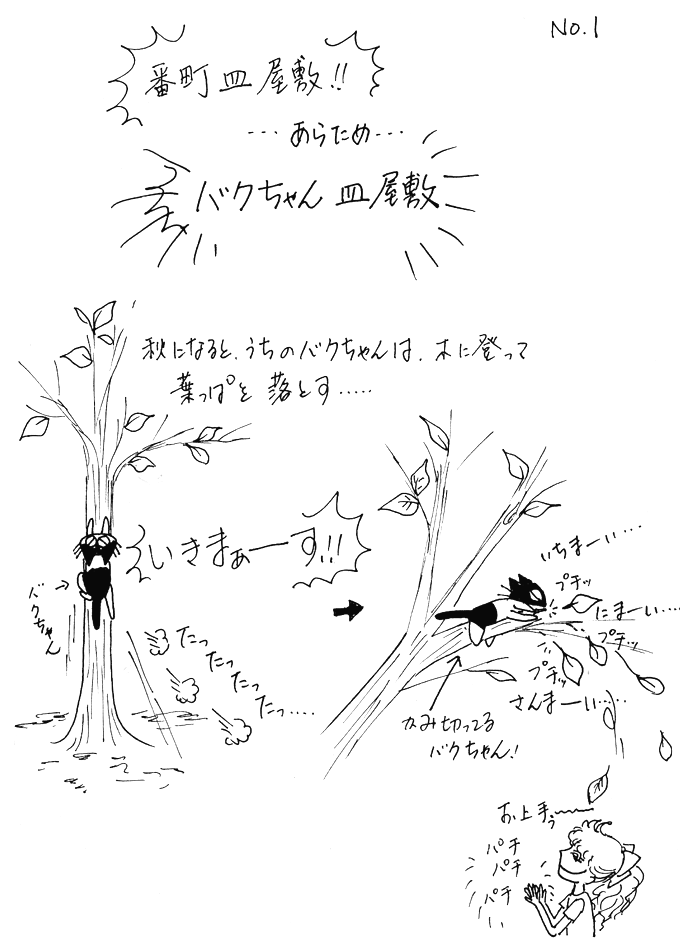 No.1
番町皿屋敷!!
…あらため…
バクちゃん皿屋敷
秋になると、うちのバクちゃんは、木に登って
葉っぱを落とす.....
いきまぁーす!!
バクちゃん
たっ
たっ
たっ
たっ....
いちまーい...
プチッ
にまーい....
プチッ
プチッ
さんまーい.....
かみ切ってる
バクちゃん!
お上手ぅ〜〜
パチ
パチ
パチ